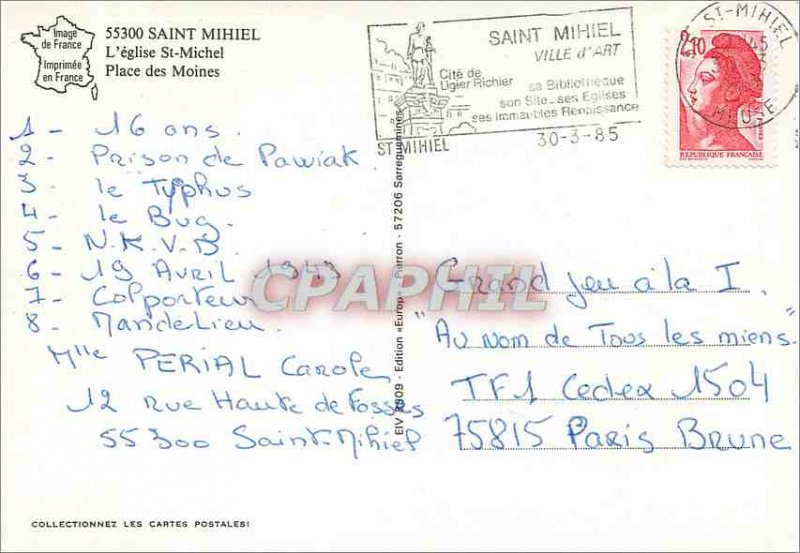 Image
de France
Imprimée
en France
55300 SAINT MIHIEL
L'église St-Michel
Place des Moines
SAINT MIHIEL
VILLE d'ART
Cité de
Ligier Richier
sa Bibliothèque
son Site_ses Eglises
ses immeubles Renaissance
ST MIHIEL
30-3-85
ST-MIHIEL
MEUSE
2,10
REPUBLIQUE FRANCAISE
1 - 16 ans.
2 - Prison de Pawiak
3 - le Typhus
4 - le Bug.
5 - N.K.V.D
6 - 19 Avril 1943
7 - Colporteur
8 - Mandelieu.
Mlle PERIAL Carole
12 rue Haute de Fosses
55300 Saint-Mihiel
EIV 2909 - Edition «Europ» - Pierron - 57206 Sarreguemines
Grand jeu à la I.
"Au nom de Tous les miens.
TF1 Cedex 1504
75815 Paris Brune
CPAPHIL
COLLECTIONNEZ LES CARTES POSTALES!